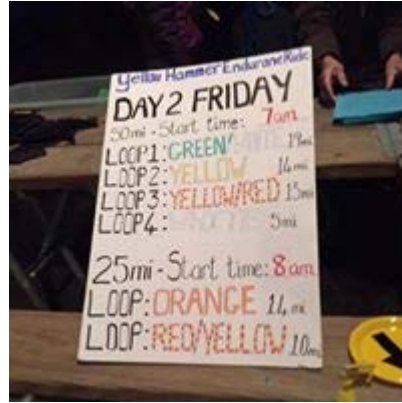 Yellow Hammer Endurance Ride
DAY 2 FRIDAY
50mi - Start time: 7am
LOOP1: GREEN/ 19mi
LOOP2: YELLOW 14mi
LOOP3: YELLOW/RED 15mi
LOOP4: 5mi
25mi - Start time: 8am
LOOP: ORANGE 14mi
LOOP: RED/YELLOW 10mi